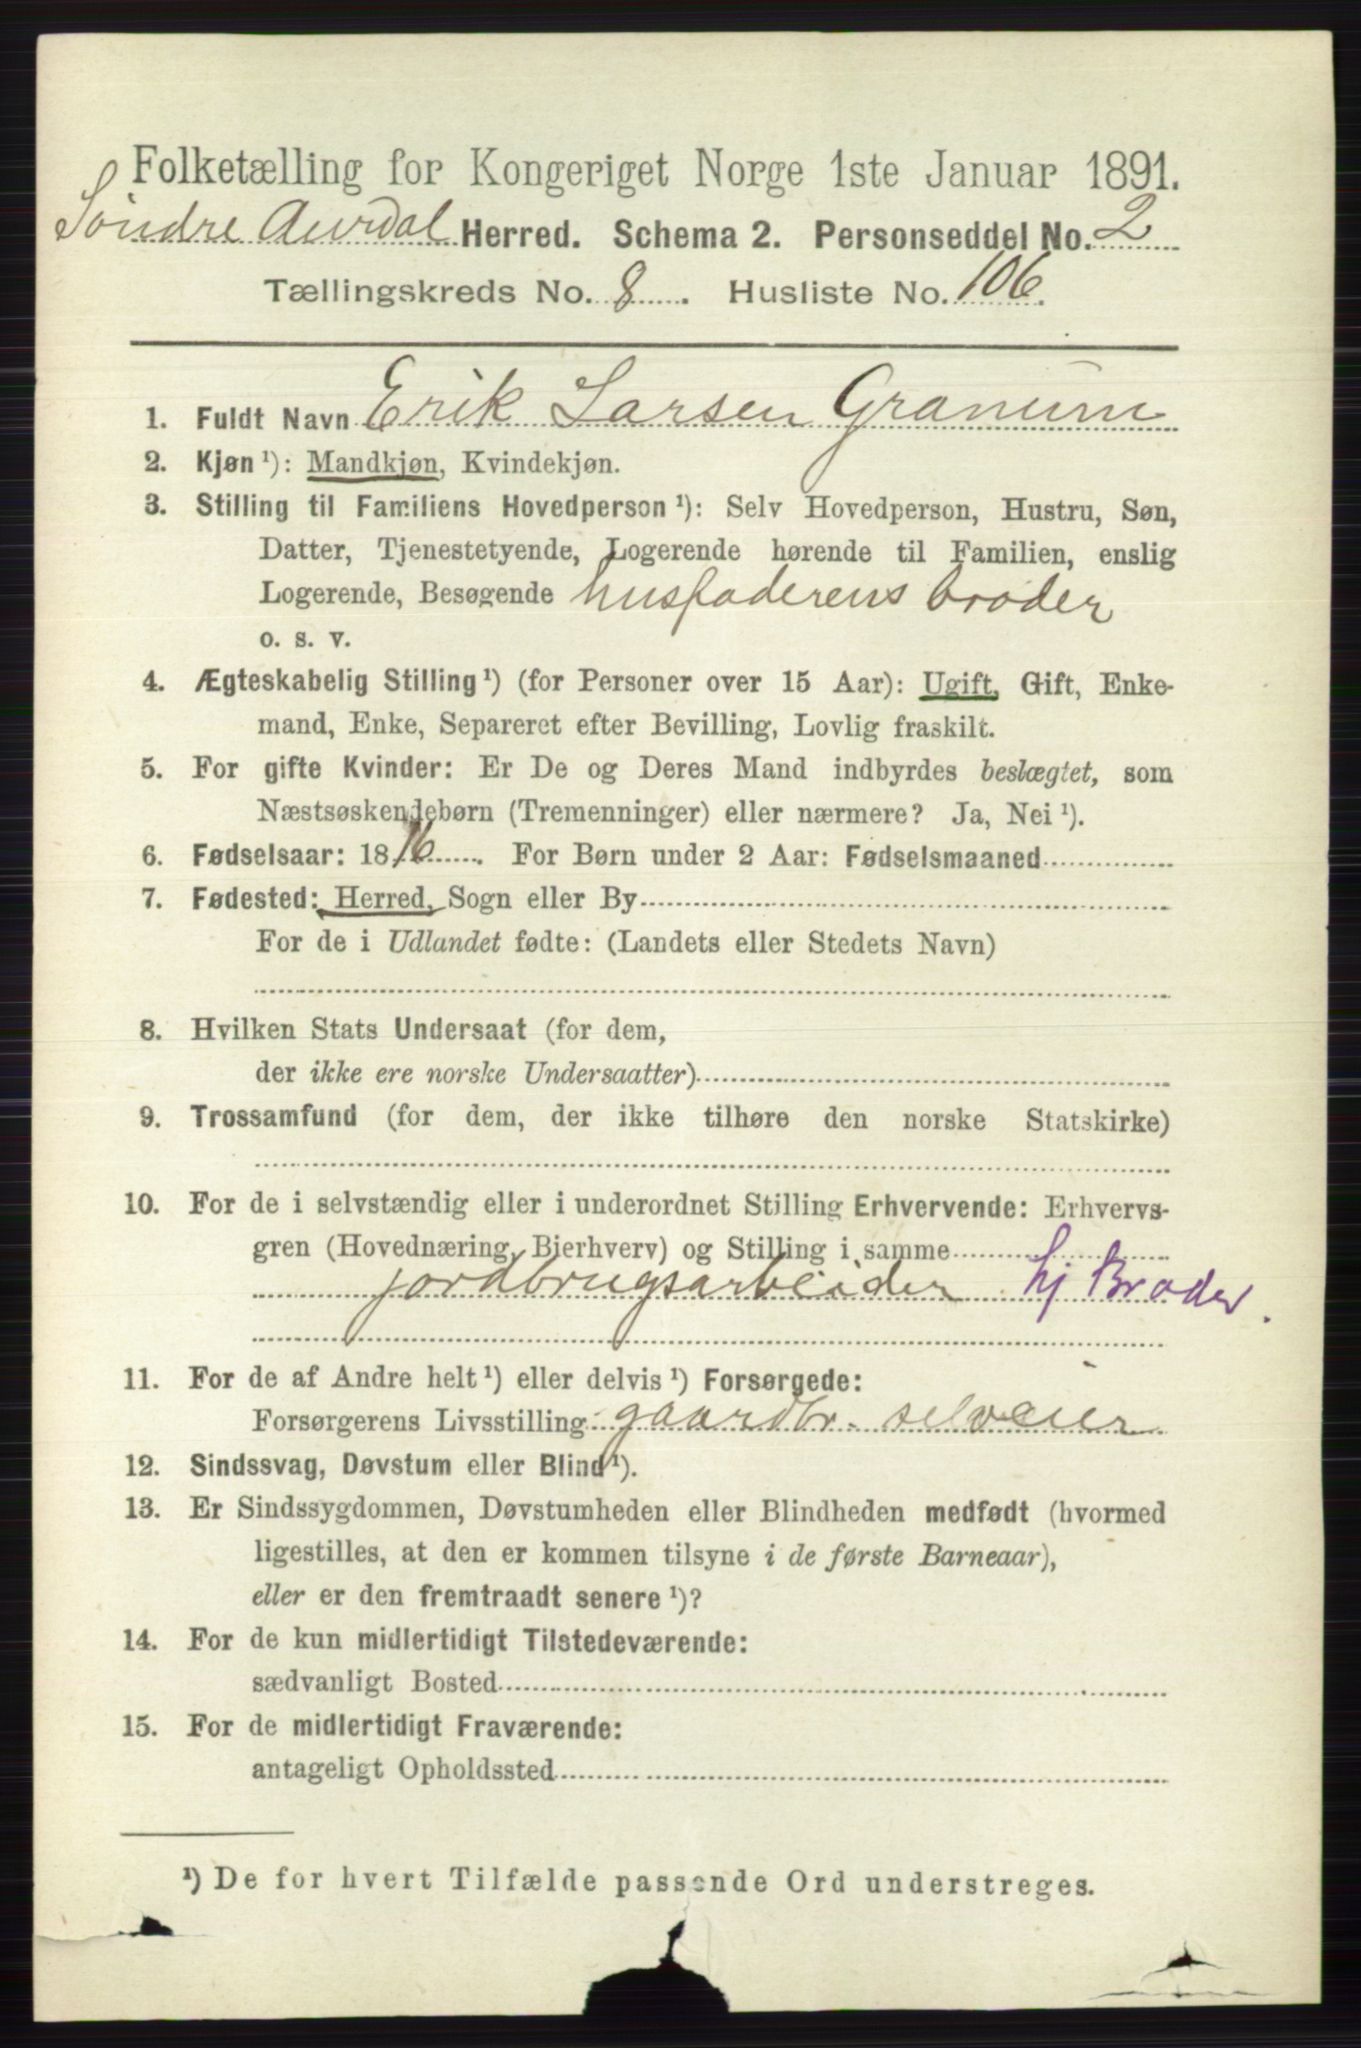 Folketælling for Kongeriget Norge 1ste Januar 1891.
Søndre Aurdal Herred. Schema 2. Personseddel No. 2
Tællingskreds No. 8. Husliste No. 106.
1. Fuldt Navn Erik Larsen Granum
2. Kjøn ¹): Mandkjøn, Kvindekjøn.
3. Stilling til Familiens Hovedperson ¹): Selv Hovedperson, Hustru, Søn,
Datter, Tjenestetyende, Logerende hørende til Familien, enslig
Logerende, Besøgende husfaderens broder
o. s. v.
4. Ægteskabelig Stilling ¹) (for Personer over 15 Aar): Ugift, Gift, Enke-
mand, Enke, Separeret efter Bevilling, Lovlig fraskilt.
5. For gifte Kvinder: Er De og Deres Mand indbyrdes beslægtet, som
Næstsøskendebørn (Tremenninger) eller nærmere? Ja, Nei ¹).
6. Fødselsaar: 1816. For Børn under 2 Aar: Fødselsmaaned
7. Fødested: Herred, Sogn eller By
For de i Udlandet fødte: (Landets eller Stedets Navn)
8. Hvilken Stats Undersaat (for dem,
der ikke ere norske Undersaatter)
9. Trossamfund (for dem, der ikke tilhøre den norske Statskirke)
10. For de i selvstændig eller i underordnet Stilling Erhvervende: Erhvervs-
gren (Hovednæring, Bierhverv) og Stilling i samme
jordbrugsarbeider hj Broder.
11. For de af Andre helt ¹) eller delvis ¹) Forsørgede:
Forsørgerens Livsstilling gaardbr. selveier
12. Sindssvag, Døvstum eller Blind ¹).
13. Er Sindssygdommen, Døvstumheden eller Blindheden medfødt (hvormed
ligestilles, at den er kommen tilsyne i de første Barneaar),
eller er den fremtraadt senere ¹)?
14. For de kun midlertidigt Tilstedeværende:
sædvanligt Bosted
15. For de midlertidigt Fraværende:
antageligt Opholdssted
¹) De for hvert Tilfælde passende Ord understreges.